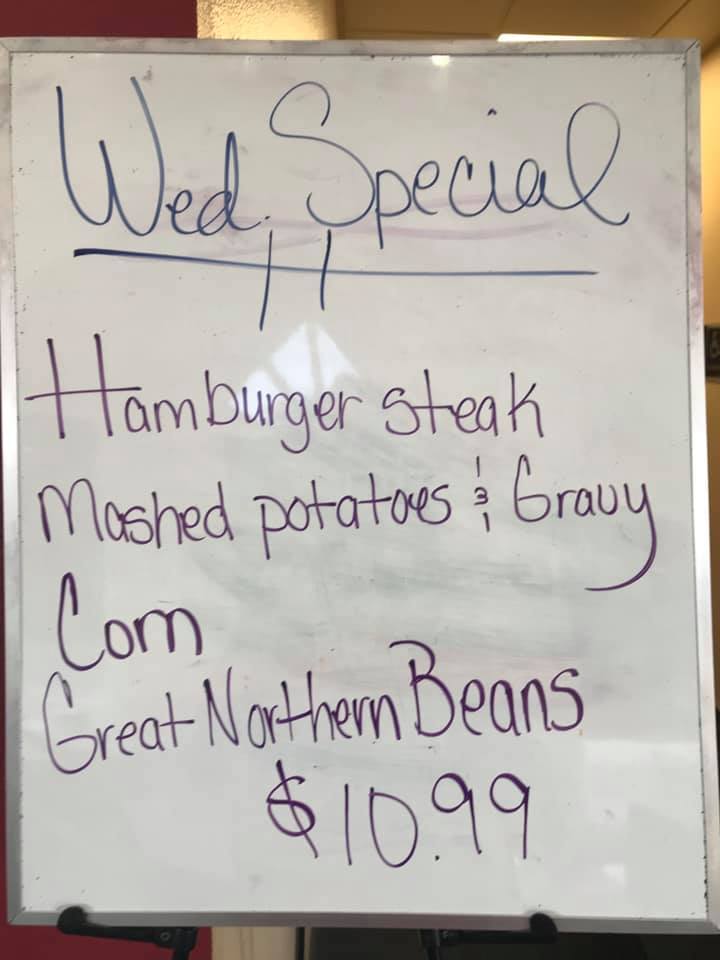 Wed. Special
Hamburger steak
Mashed potatoes & Gravy
Corn
Great Northern Beans
$10.99